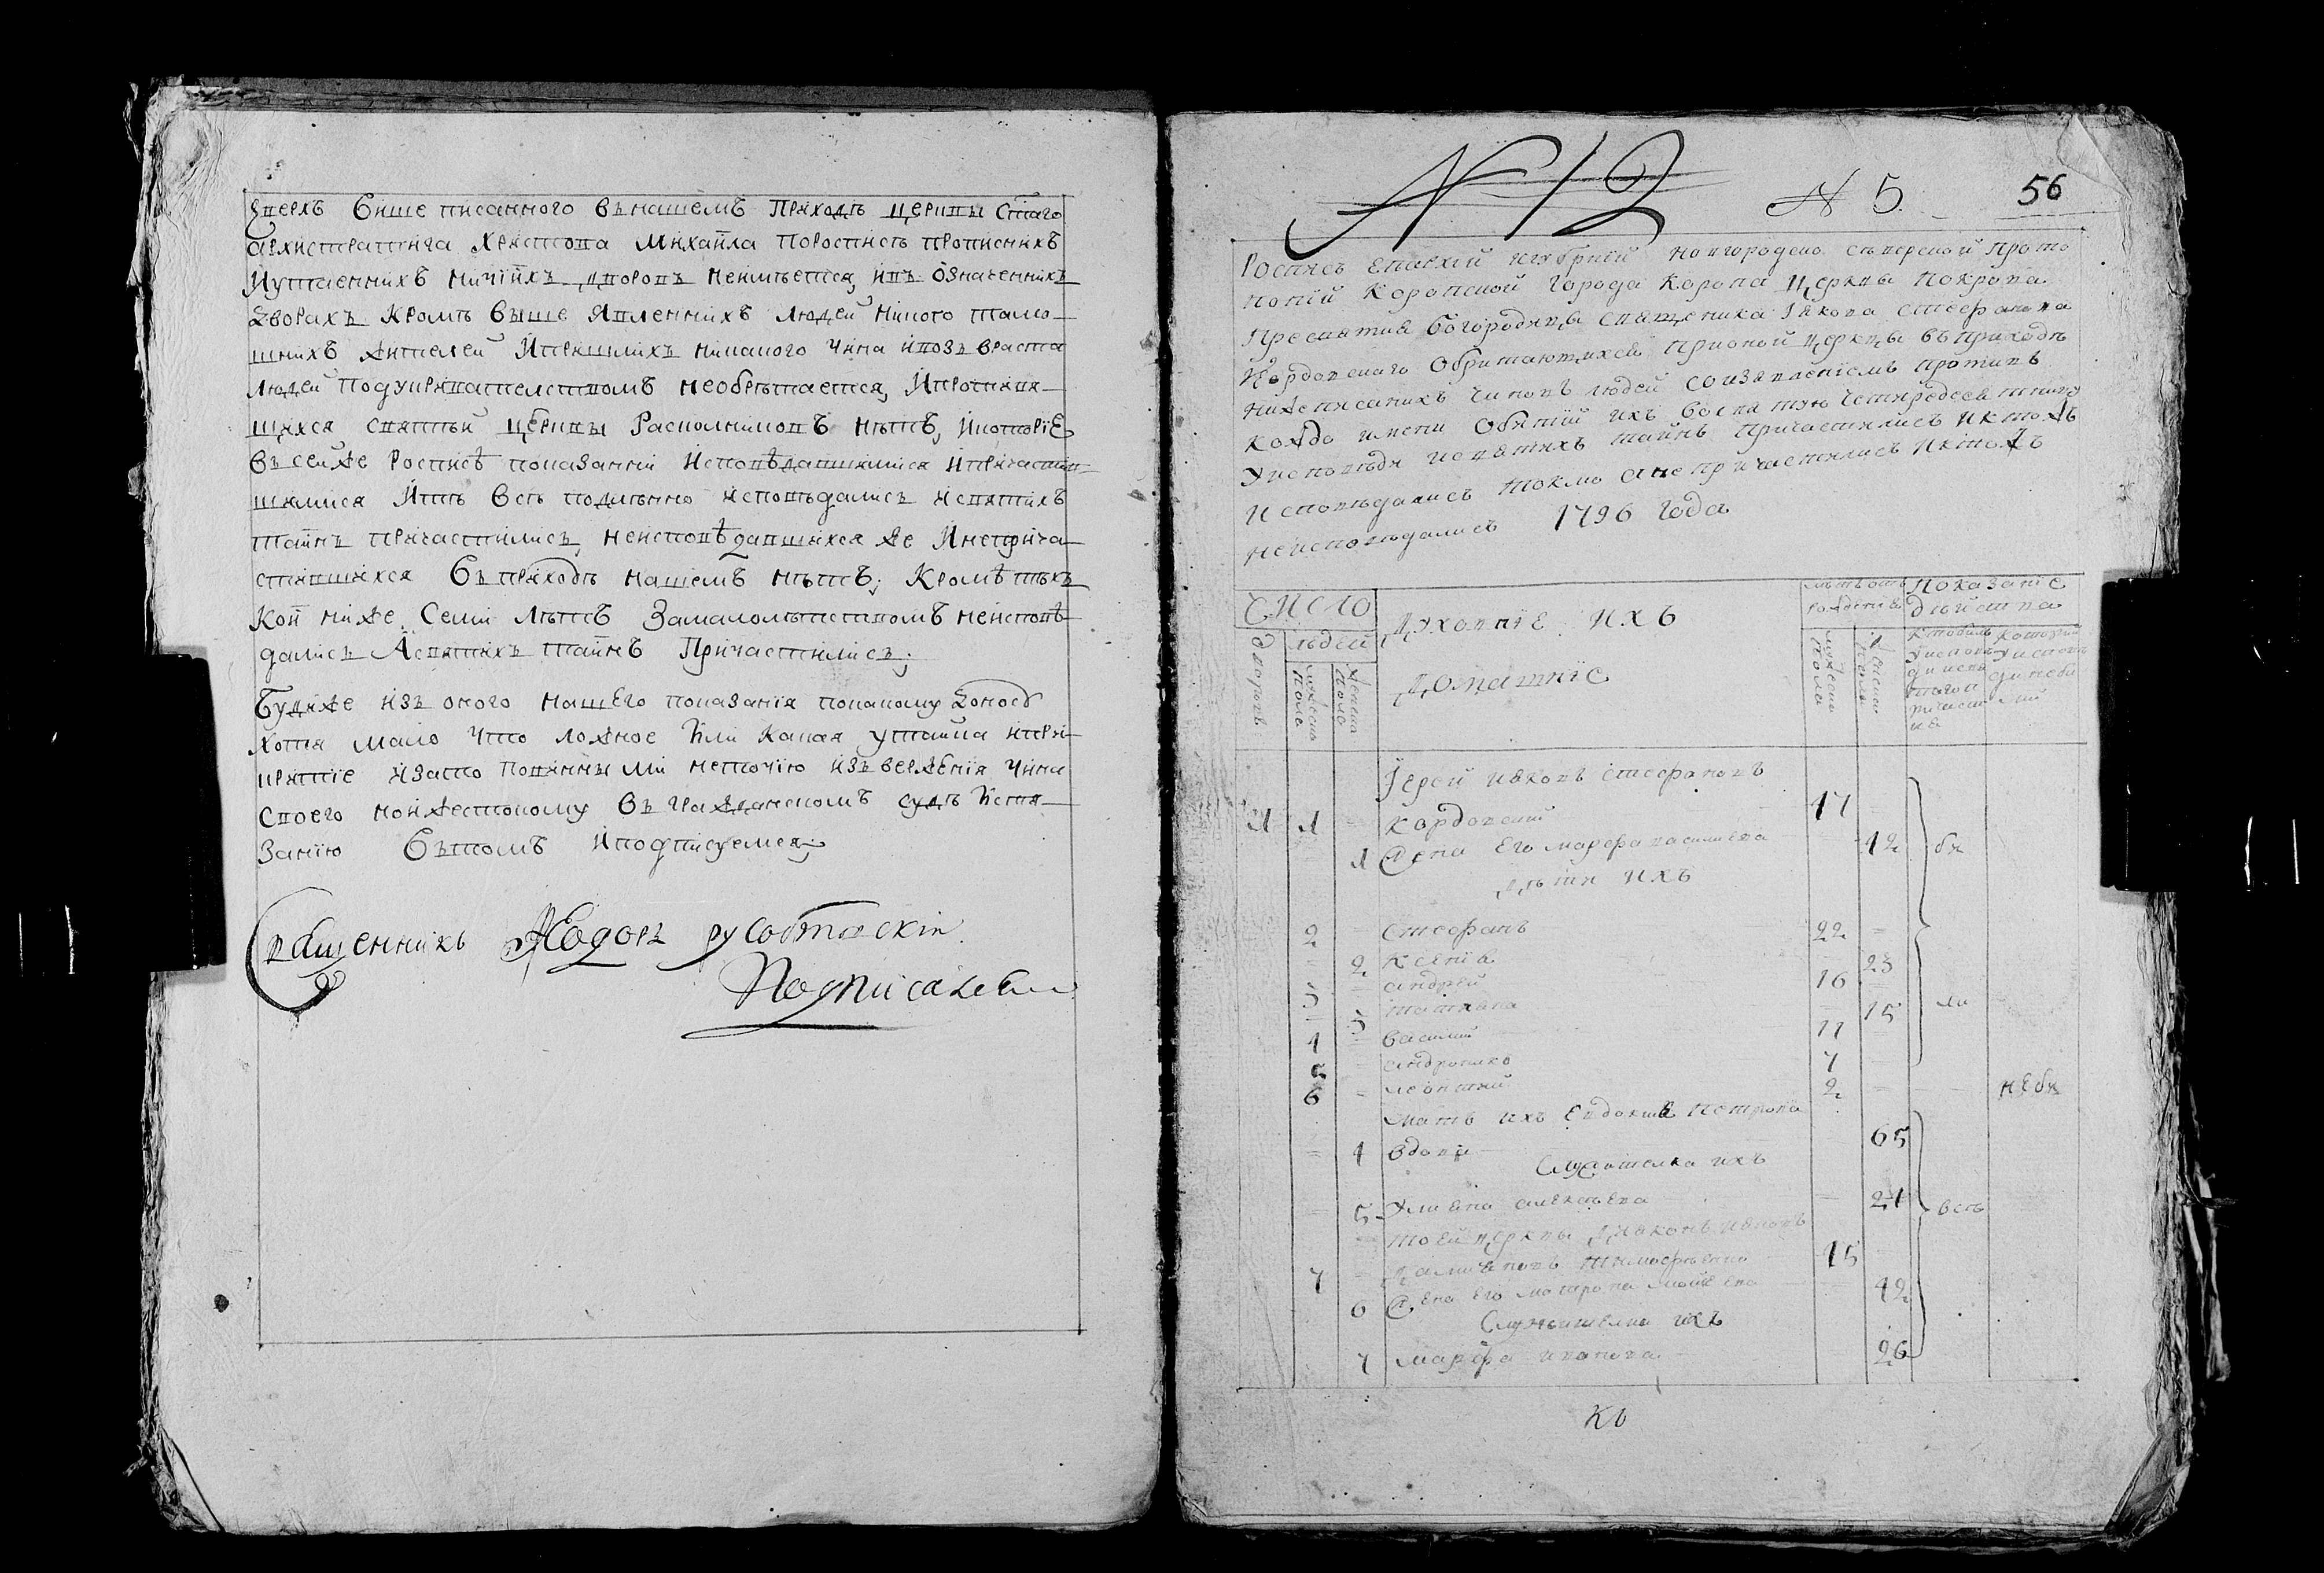 Зверхъ Више писанного внашемъ Приходѣ церкви Стаго
Архистратига Христова Михаила Поросписѣ прописнихъ
Иутаеннихъ ничіихъ дворовъ неимѣется, ивъ Означеннихъ
Дворахъ Кромѣ Выше Явленнихъ Людей никого тамо-
шнихъ жителей Ипришлихъ никакого Чина ивозъ враста
Людей подукривателствомъ необрѣтается, Ипротивя-
щихся святѣй Церкви Расколниковъ нѣтъ, Икоторіе
Въ сейже Росписѣ показанни Исповѣдавшимися Ипричастив-
шимися Итѣ Всѣ подлѣнно исповѣдались исвятихъ
таинъ причастились, неисповѣдавшихся же Инеприча-
стившихся Въ приходѣ нашемъ нѣтъ; Кромѣ тѣхъ
Кои ниже Семи Лѣтъ Замалолѣтствомъ неисповѣ-
дались Асвятихъ таинъ Причастились;
Будиже изъ оного нашего показанія покакому Доносѣ
Хотя мало Что ложное Или Какая утайка ипри-
критіе изато повинны Мы неточію изверженія Чина
Своего ноижестокому Въ гражданскомъ судѣ Истя-
Занію Вътомъ Иподписуемся;
Священникъ Федоръ русовскій
Подписалься
N 12
N 5
56
Роспись Епархіи
новгородско сѣверской прото
попіи Коропской города Коропа Церкви Покрова
Пресвятия Богородици Священика Іякова Стефанова
Кордовского Обритающихся Прионой церкви въприходѣ
нижеписанихъ Чиновъ людей Соизявленіемъ противъ
кождо имени Обытій ихъ Восвятую Четиредесятницу
Уисповѣди исвятихъ таинъ причастились иктожъ
исповѣдались токмо анепричастились иктожъ
неисповѣдались 1796 года
Число
Духовніе ихъ
Домашніе
лѣтъотъ рожденія
Показаніе дѣйства
людей
Дворовъ
мужеска поля
женска поля
мужеска поля
женска поля
Іерей Иаковъ Стефановъ
1 1 = Кордовскій 47
= 1 Жена Его марфа василиева 42 бы
Дѣти ихъ
2 Стефанъ 22 =
= 2 Ксенія 23
3 = Андрей 16
= 3 татияна 15 ли
4 = Василий 11
5 = Андрюшко 7
6 = леонтий 2 = небы
мать ихъ Евдокия Петрова
= 4 вдова 65
Служителка ихъ
5 Улияна алексѣева 21 всѣ
тоей церкви Диаконъ иаковъ
7 = Дамияновъ тимофѣенко 45
6 Жена Его мотрона моисѣева 42
Служителка ихъ
7 марфа иванова 26
Къ